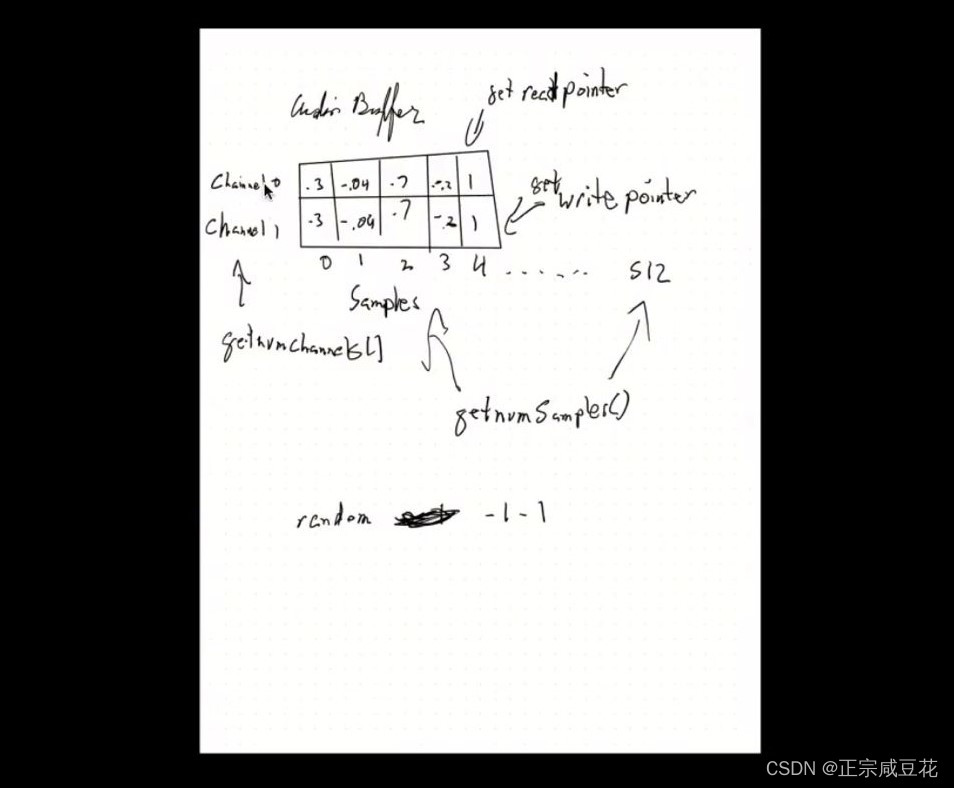 Audio Buffer
get read pointer
Channel 0 .3 -.04 .7 -.2 1
Channel 1 .3 -.04 .7 -.2 1
get write pointer
0 1 2 3 4 ...... 512
Samples
getnumchannels()
getnumSamples()
random -1 - 1
CSDN @正宗咸豆花